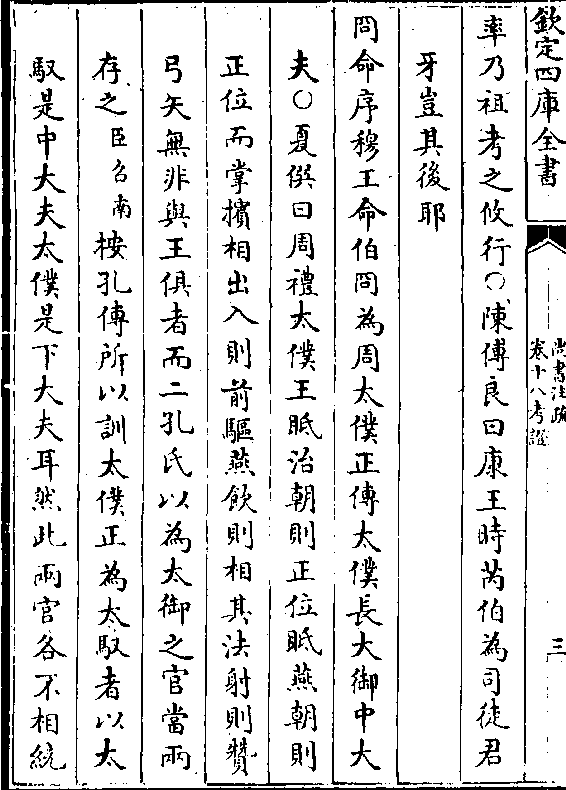 欽定四庫全書
尚書注疏
卷十八考證
三
率乃祖考之攸行○陳傅良曰康王時芮伯為司徒君
牙豈其後耶
冏命序穆王命伯冏為周太僕正傳太僕長大御中大
夫○夏僎曰周禮太僕王眡治朝則正位眡燕朝則
正位而掌擯相出入則前驅燕飲則相其法射則贊
弓矢無非與王俱者而二孔氏以為太御之官當兩
存之臣召南按孔傳所以訓太僕正為太馭者以太
馭是中大夫太僕是下大夫耳然此兩官各不相統